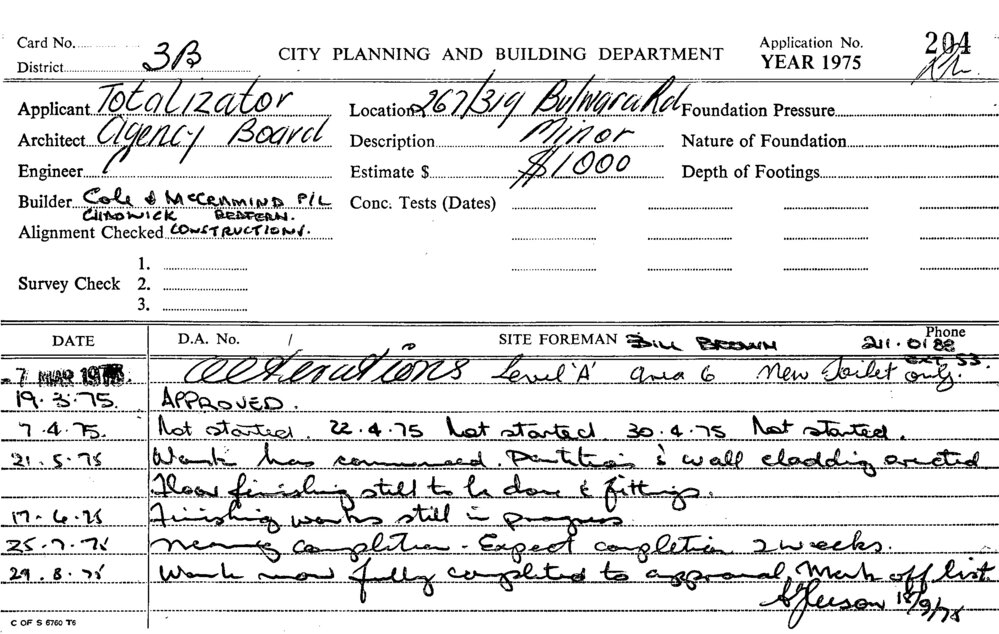 Card No. CITY PLANNING AND BUILDING DEPARTMENT Application No. 204
District 3B YEAR 1975
Applicant Totalizator Location 267/319 Bulwara Rd Foundation Pressure
Architect Agency Board Description Minor Nature of Foundation
Engineer Estimate $ $1000 Depth of Footings
Builder Cole & P/L Conc. Tests (Dates)
CHADWICK REDFERN.
Alignment Checked CONSTRUCTIONS.
1.
Survey Check 2.
3.
DATE D.A. No. / SITE FOREMAN BILL BROWN Phone 211.0188 EXT 53.
7 MAR 1975 Alterations Level 'A' area 6 New Toilet only.
19.3.75. APPROVED.
7.4.75. Not started. 22.4.75 Not started. 30.4.75 Not started.
21.5.75 Work has commenced. Partitions & wall cladding erected
Floor finishing still to be done & fittings.
17.6.75 Finishing works still in progress.
25.7.75 nearing completion - Expect completion 2 weeks.
29.8.75 Work now fully completed to approval, Mark off list.
18/9/75
C OF S 6760 T6